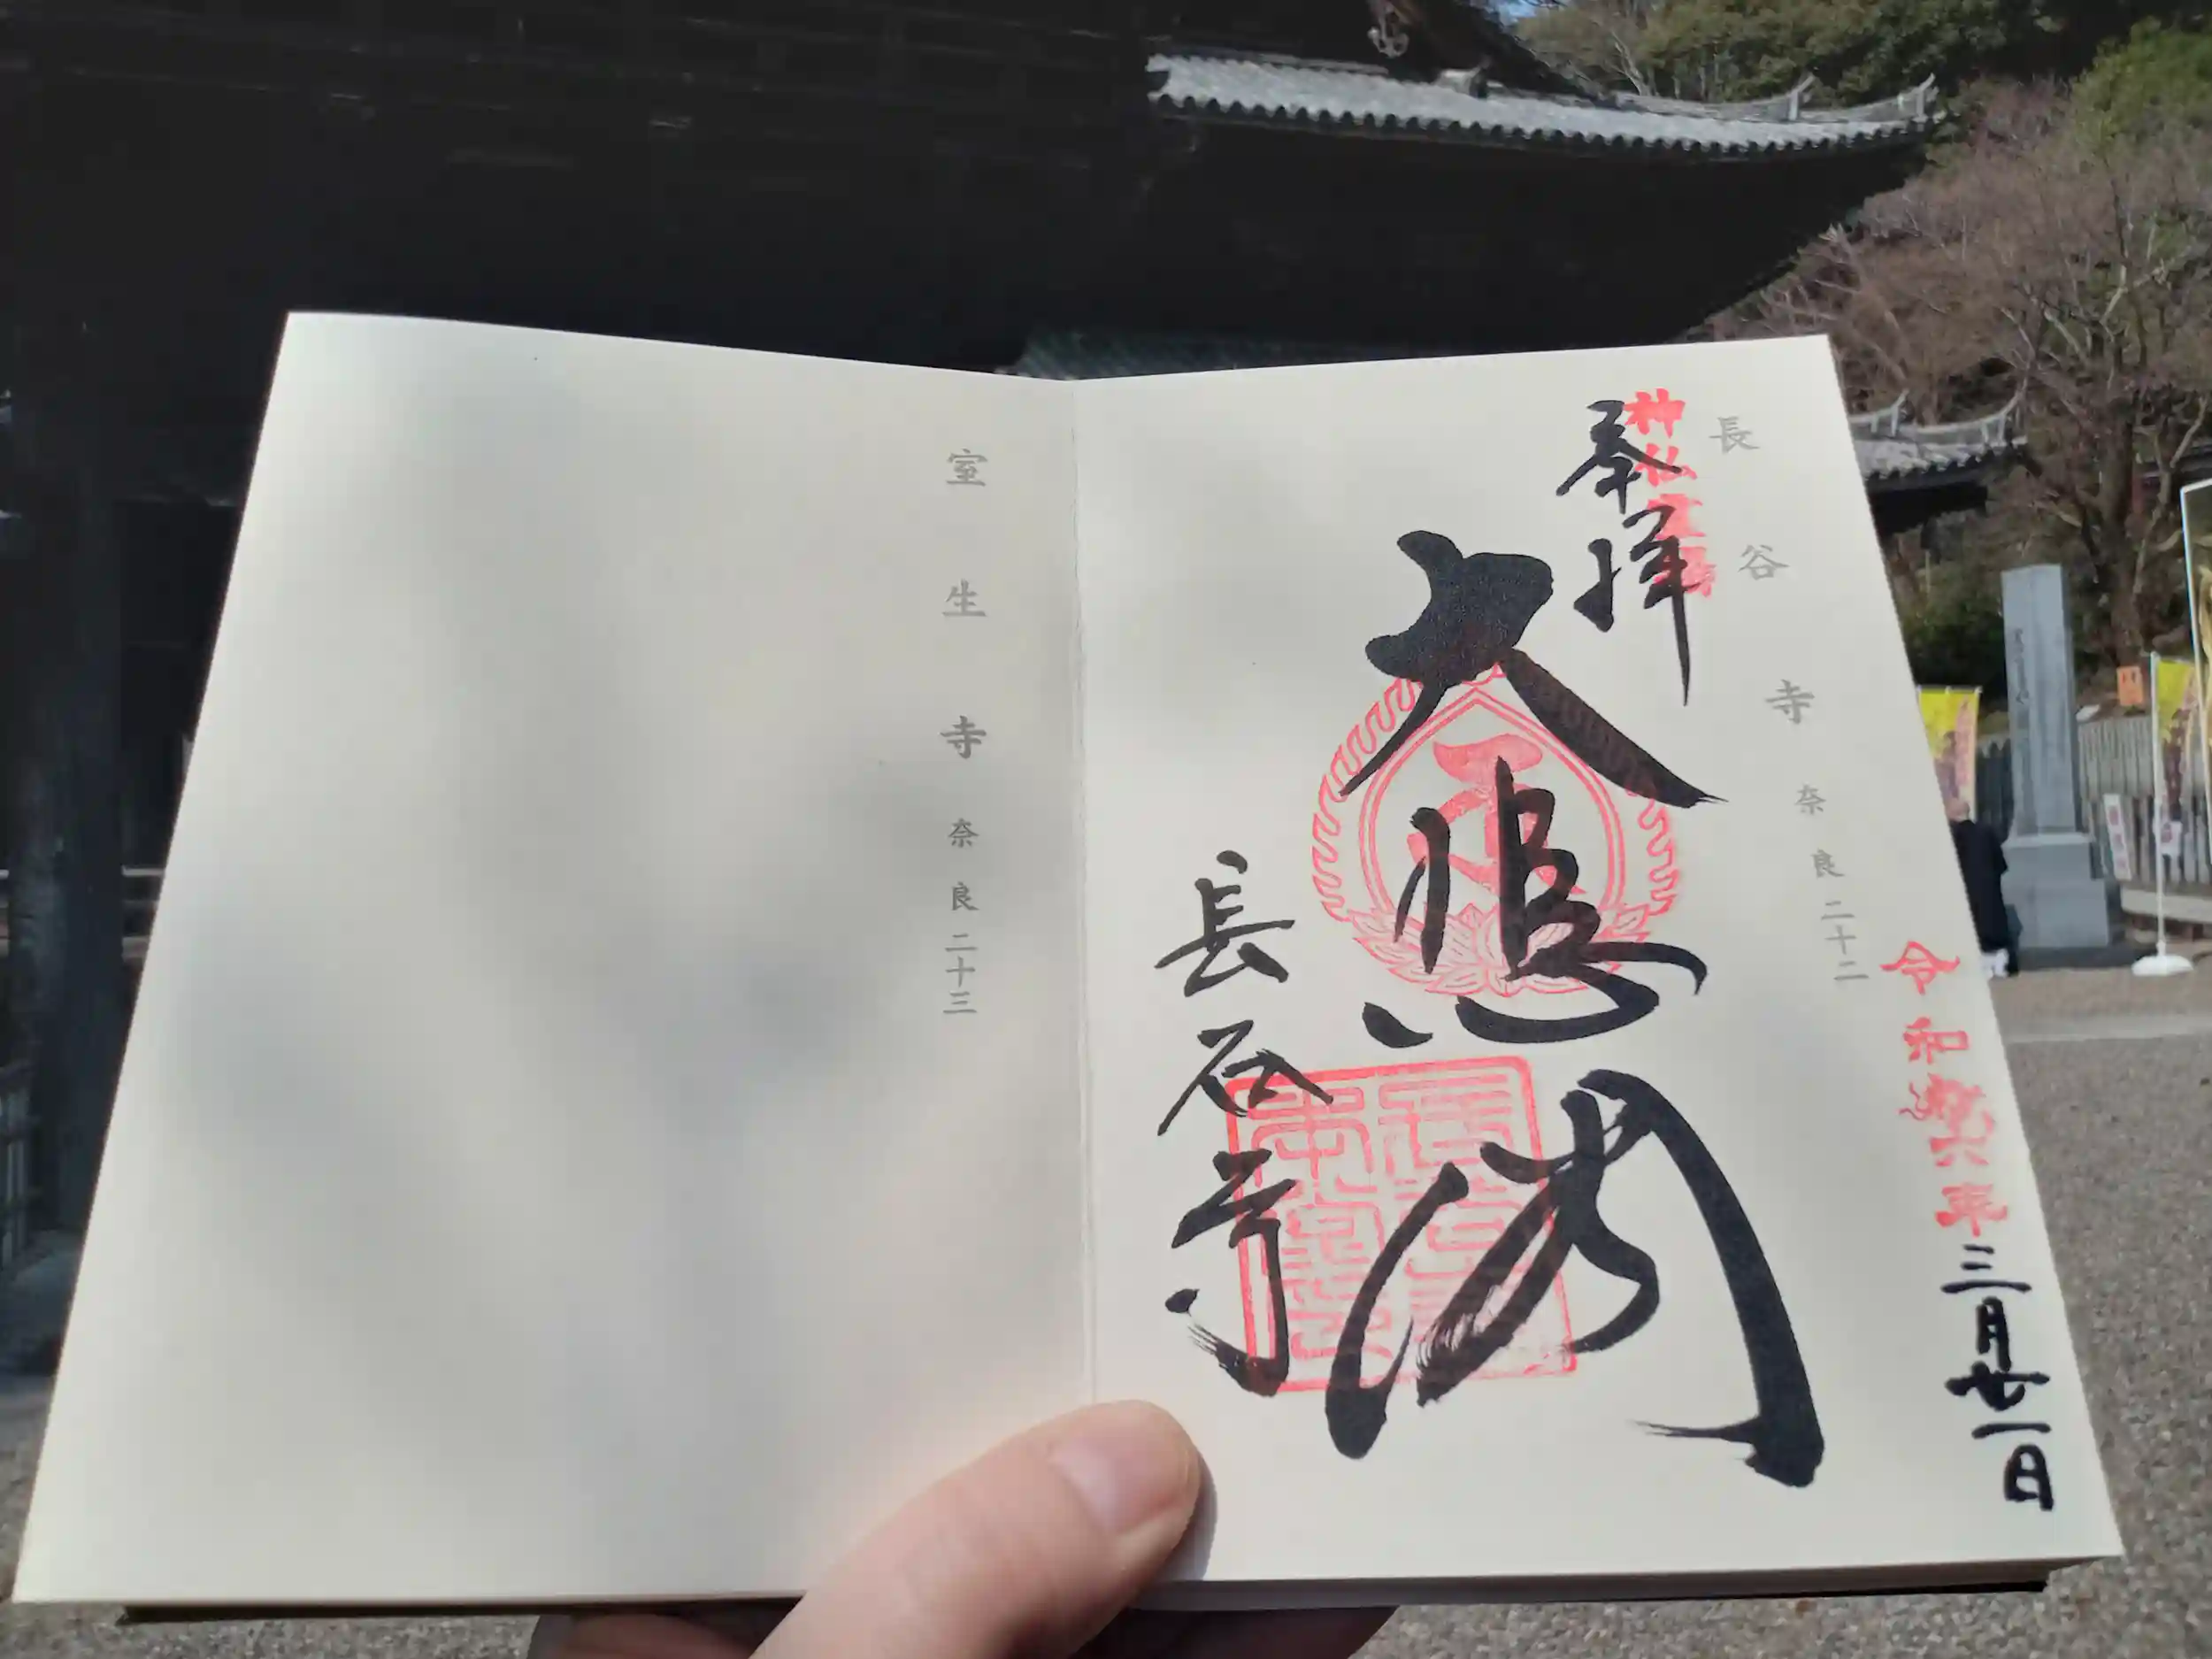 長谷寺 奈良 二十二
神仏霊場
奉拝
大悲閣
長谷寺
令和六年三月廿一日
室生寺 奈良 二十三